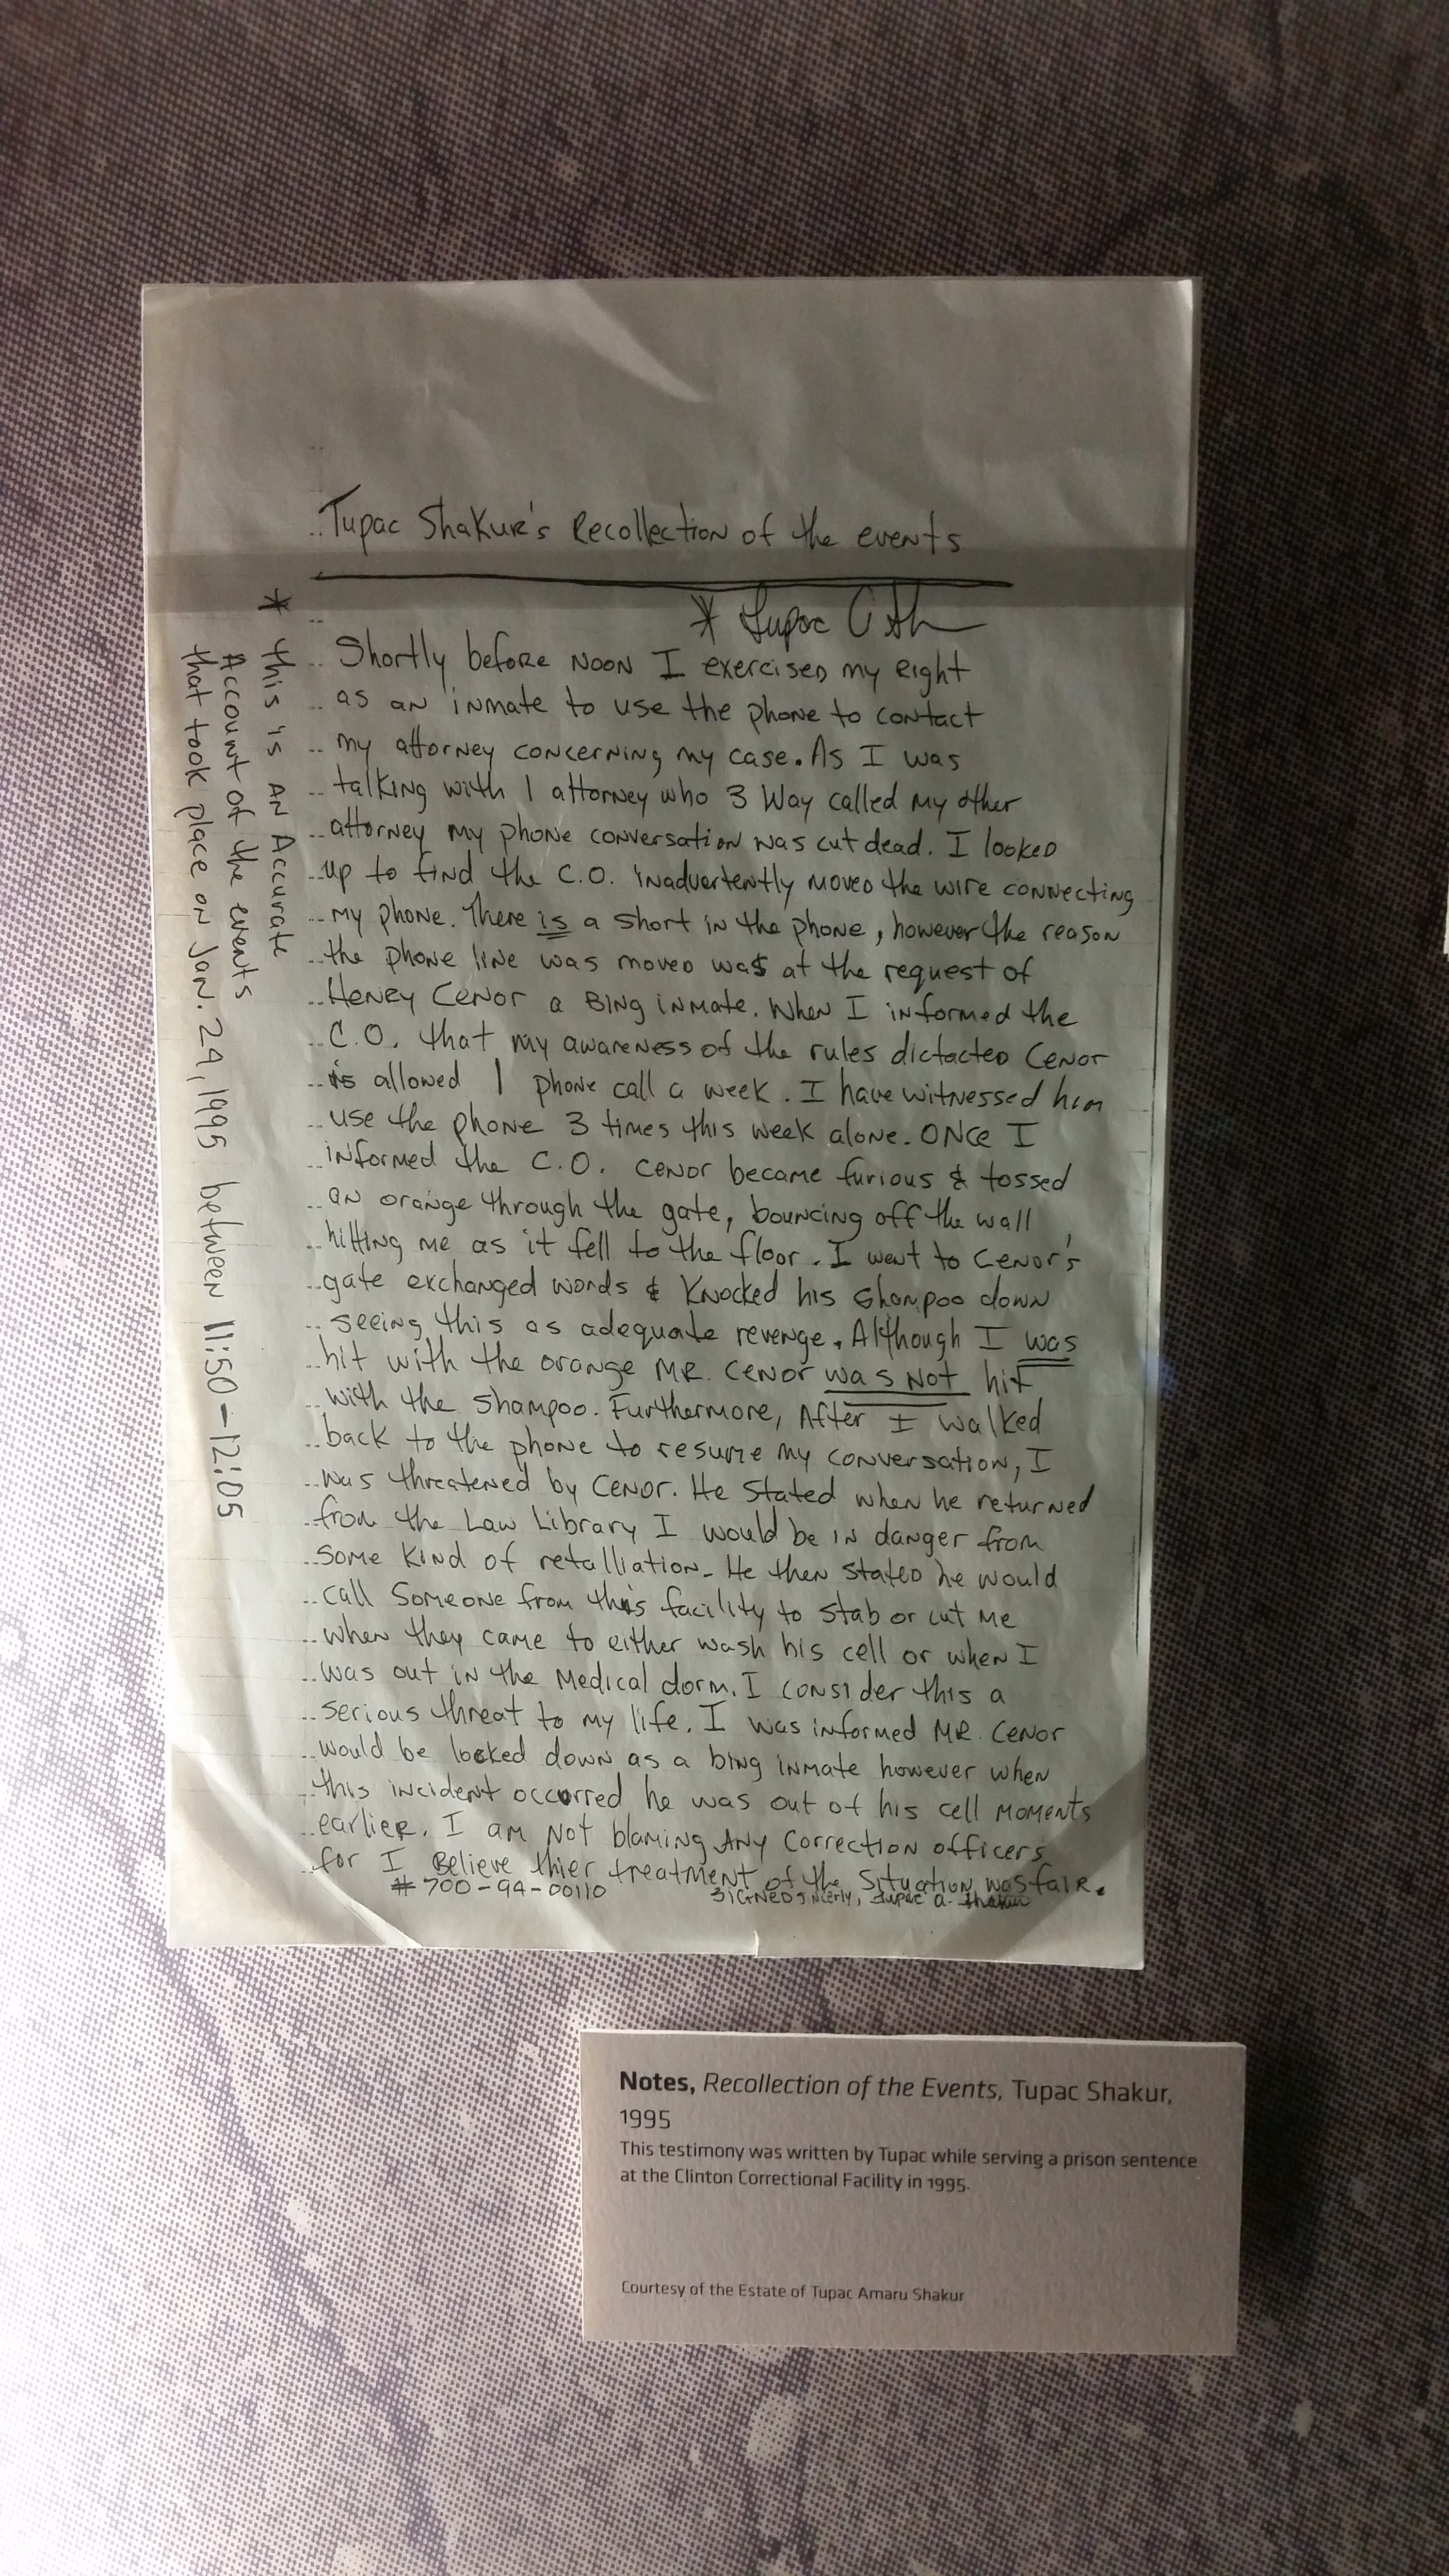 Tupac Shakur's Recollection of the events
* Tupac
Shortly before NOON I exercised my Right
as an inmate to use the phone to contact
my attorney concerning my case. As I was
talking with 1 attorney who 3 Way called my other
attorney my phone conversation was cut dead. I looked
up to find the C.O. inadvertently moved the wire connecting
my phone. There is a short in the phone, however the reason
the phone line was moved was at the request of
Henry Cenor a Bing inmate. When I informed the
C.O. that my awareness of the rules dictacted Cenor
is allowed 1 phone call a week. I have witnessed him
use the phone 3 times this week alone. ONCE I
informed the C.O. Cenor became furious & tossed
an orange through the gate, bouncing off the wall
hitting me as it fell to the floor. I went to Cenor's
gate exchanged words & Knocked his Shampoo down
seeing this as adequate revenge. Although I was
hit with the orange MR. Cenor was Not hit
with the Shampoo. Furthermore, After I walked
back to the phone to resume my conversation, I
was threatened by Cenor. He Stated when he returned
from the Law Library I would be in danger from
some kind of retalliation. He then stated he would
call Someone from this facility to stab or cut me
when they came to either wash his cell or when I
was out in the Medical dorm. I consider this a
serious threat to my life. I was informed MR. Cenor
would be locked down as a bing inmate however when
this incident occurred he was out of his cell moments
earlier. I am Not blaming Any Correction officers
for I Believe thier treatment of the Situation was fair.
# 700-94-00110
SIGNED sincerly, Tupac a. Shakur
* this is an Accurate
Account of the events
that took place on Jan. 24, 1995 between 11:50-12:05
Notes, Recollection of the Events, Tupac Shakur,
1995
This testimony was written by Tupac while serving a prison sentence
at the Clinton Correctional Facility in 1995.
Courtesy of the Estate of Tupac Amaru Shakur